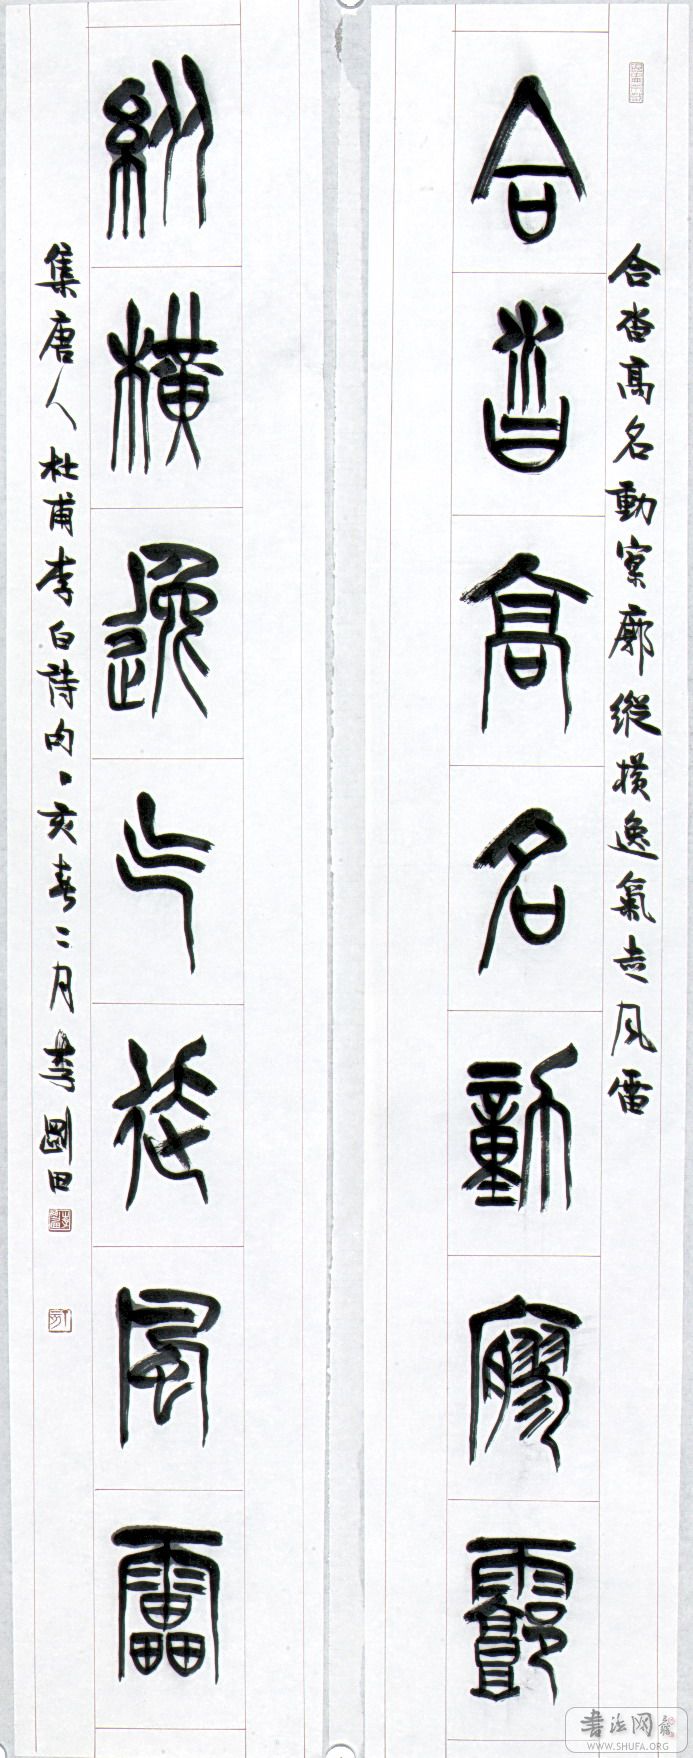 合沓高名動寥廓縱橫逸氣走風雷
合沓高名動寥廓
縱橫逸氣走風雷
集唐人杜甫李白詩句丁亥春二月李國田
书法网
WWW.SHUFA.ORG